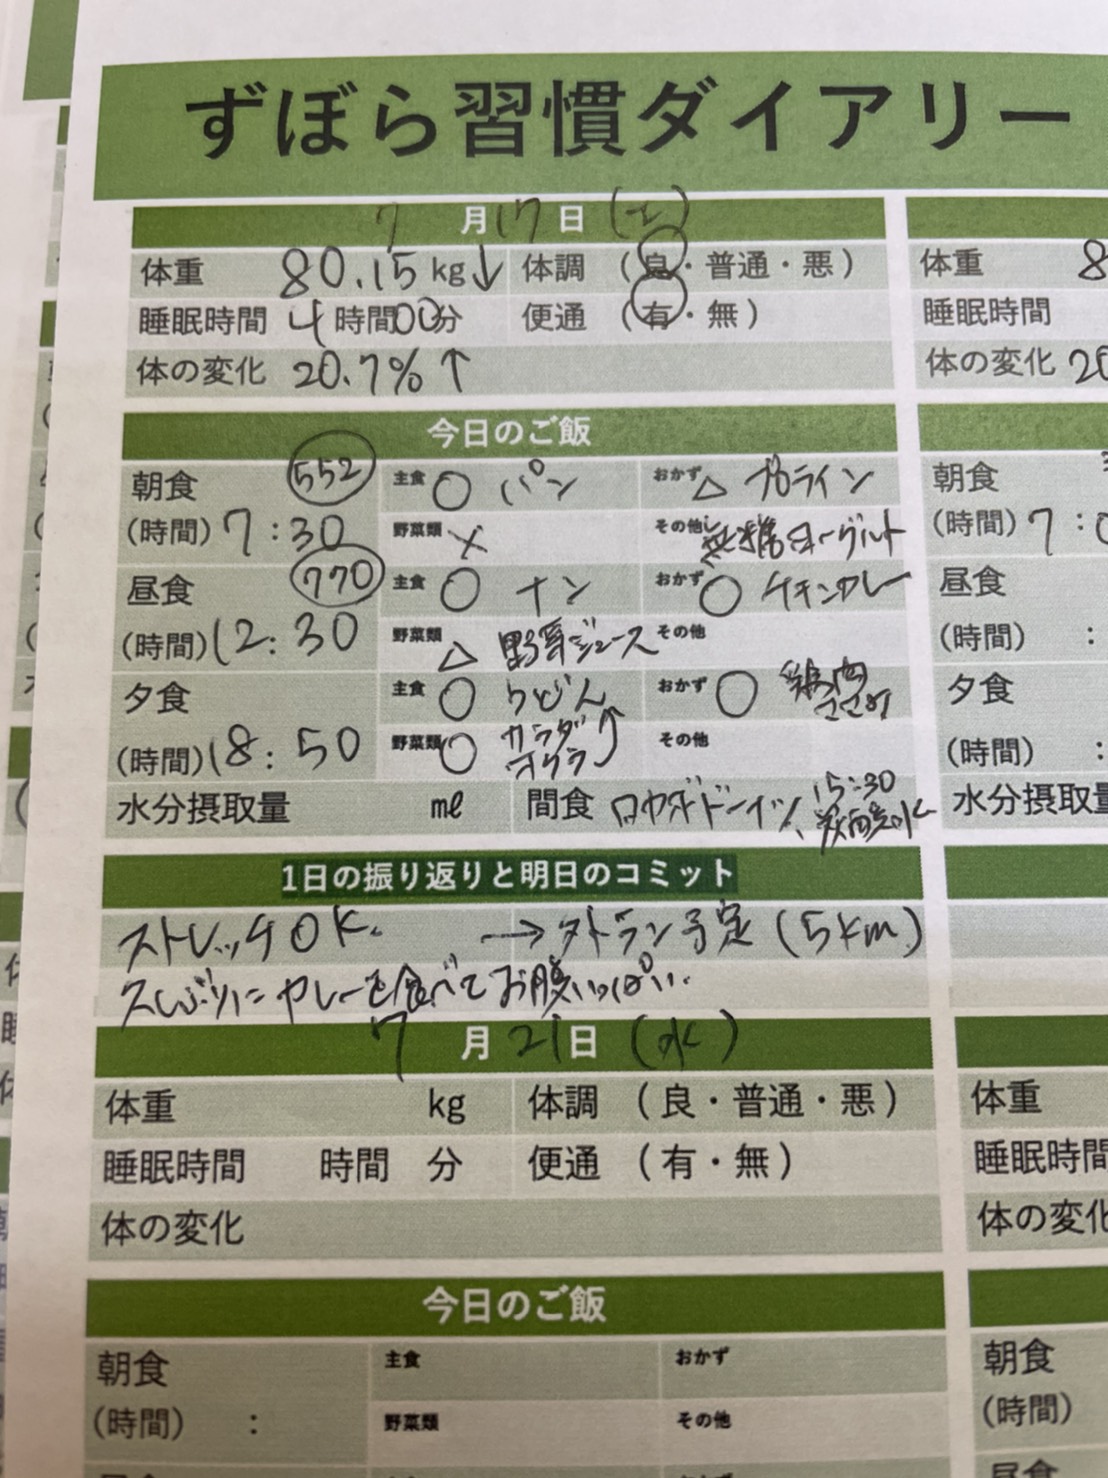 ずぼら習慣ダイアリー
7月17日(土)
体重 80.15kg↓ 体調 (良・普通・悪)
睡眠時間 4時間00分 便通 (有・無)
体の変化 20.7%↑
今日のご飯
朝食 552 主食 ○ パン おかず △ プロテイン
(時間) 7:30 野菜類 × その他 無糖ヨーグルト
昼食 770 主食 ○ ナン おかず ○ チキンカレー
(時間) 12:30 野菜類 △ 野菜ジュース その他
夕食 主食 ○ うどん おかず ○ 鶏肉 ささみ
(時間) 18:50 野菜類 ○ サラダ オクラ その他
水分摂取量 ml 間食 ロカボドーナイツ、15:30 炭酸水
1日の振り返りと明日のコミット
ストレッチOK. → 外ラン予定(5km)
久しぶりにカレーを食べてお腹いっぱい.
7月21日(水)
体重 kg 体調 (良・普通・悪)
睡眠時間 時間 分 便通 (有・無)
体の変化
今日のご飯
朝食 主食 おかず
(時間) : 野菜類 その他
体重 8
睡眠時間
体の変化 20
朝食
(時間) 7:
昼食
(時間) :
夕食
(時間) :
水分摂取量
体重
睡眠時間
体の変化
朝食
(時間)
昼食